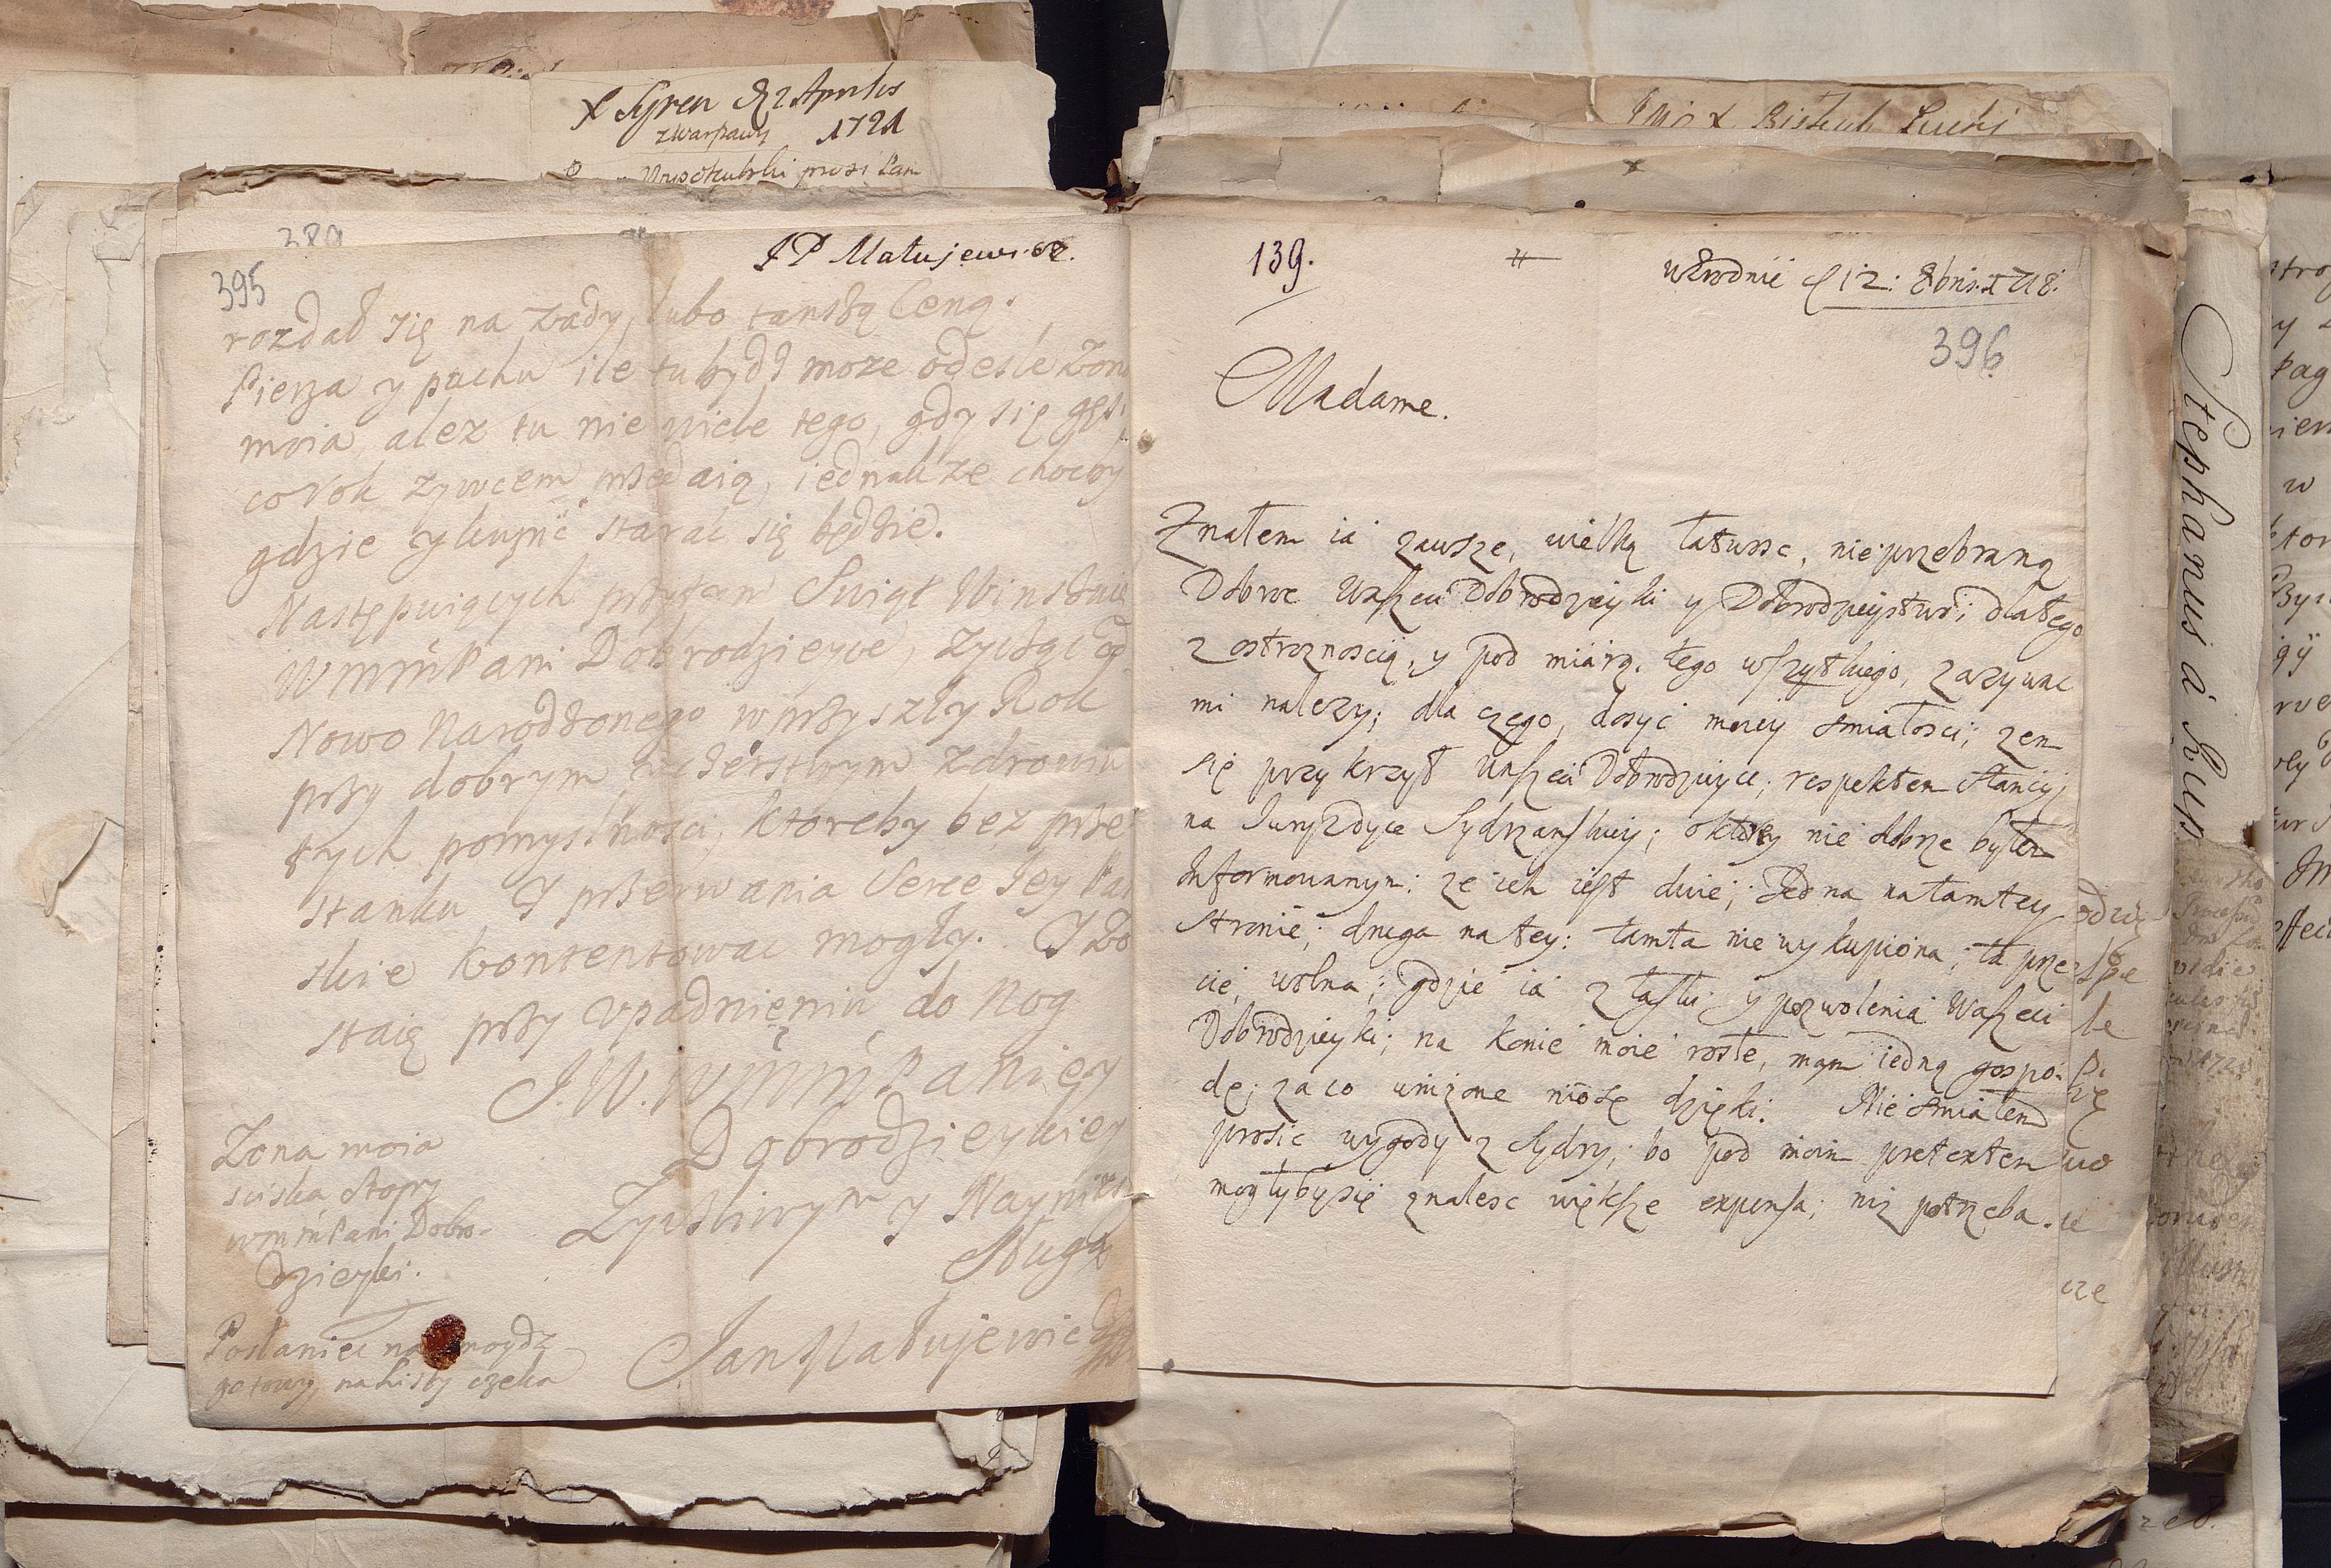 X Syren D 2 Aprilis
z Warszawy 1721
prosi Pan
389
JP Matujewicz.
395
rozdał się na zady, lubo tanszą Ceną.
Pierza y puchu ile tu bydz moze odesle Zona
moia, alez tu nie wiele tego, gdy się gęsi
co rok zywcem przedaią, iednakze chocby
gdzie y kupić starac się będzie.
Następuiących przytem Swiąt Winszuię
WMMPani Dobrodzieyce, zycząc od
Nowo Narodzonego w przyszły Rok
przy dobrym, y czerstwym zdrowiu
tych pomyslnosci, ktoreby bez prze
stanku y przerwania Serce Jey Pań
skie kontentowac mogły. I Zo
staię przy vpadnieniu do Nog
J.W.WMMPaniey
Dobrodzieykiey
Zyczliwym y Nayniższ
Sługą
Jan Matujewicz
Zona moia
sciska stopy
wmmPani Dobro-
dzieyki.
Posłaniec na
gotowy, na Listy czeka
X Biskub Lucki
139.
w Grodnie d 12: 8bris. 1718.
396
Madame.
Znałem ia zawsze, wielką łatwosc, nieprzebraną
Dobroc Waszeci Dobrodzieyki y Dobrodzieystwo; dlatego
z ostroznoscią, y pod miarą, tego wszytkiego, zazywac
mi nalezy; dla czego, dosyć moiey smiałosci; zem
się przykrzył Waszeci Dobrodzieyce; respektem stancyi
na Juryzdyce Sydrzanskiey; o ktorey nie dobrze byłem
Informowanym: ze ich iest dwie; Jedna na tamtey
stronie; druga na tey: tamta nie wykupiona; ta prze-
cie, wolna; gdzie ia z łaski y pozwolenia Waszeci
Dobrodzieyki; na konie moie rosłe, mam iedną gospo-
dę; za co unizone niosę dzięki: Nie smiałem
prosic wygody z Sydry; bo pod moim pretextem
mogłyby się znalesc większe expensa; niz potrzeba.
Stephanus à Rup